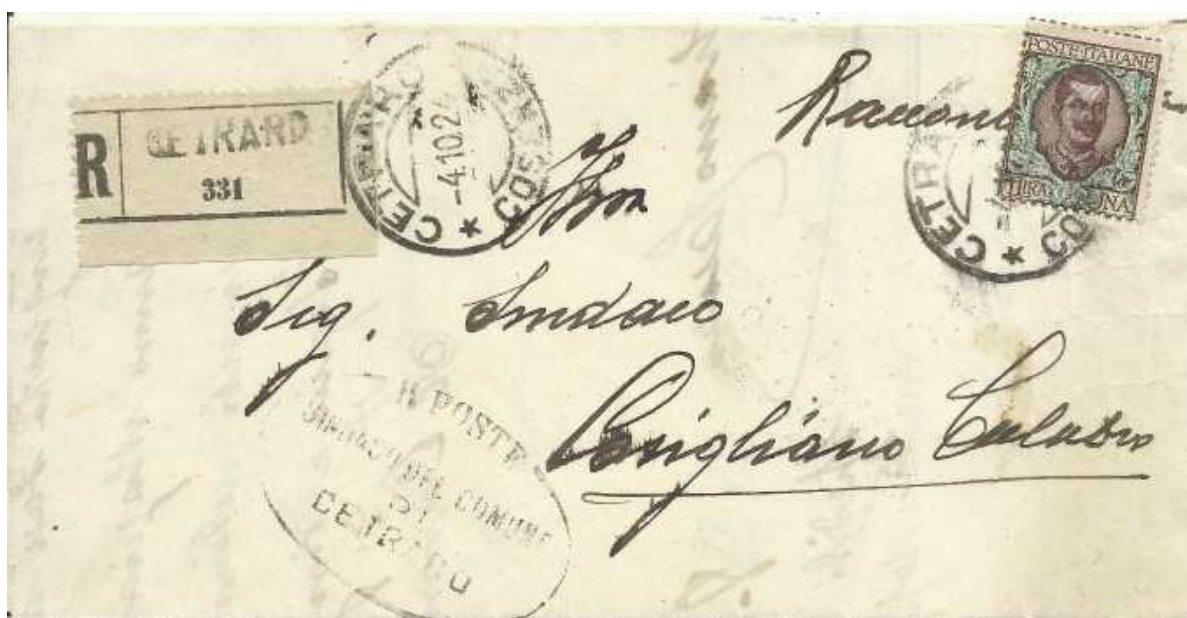 R CETRARO
331
CETRARO COSENZA
-4.10.2
POSTE ITALIANE
LIRA UNA
CETRARO CO
Ill.mo
Sig. Sindaco
Corigliano Calabro
R. POSTE
SINDACO DEL COMUNE
DI
CETRARO